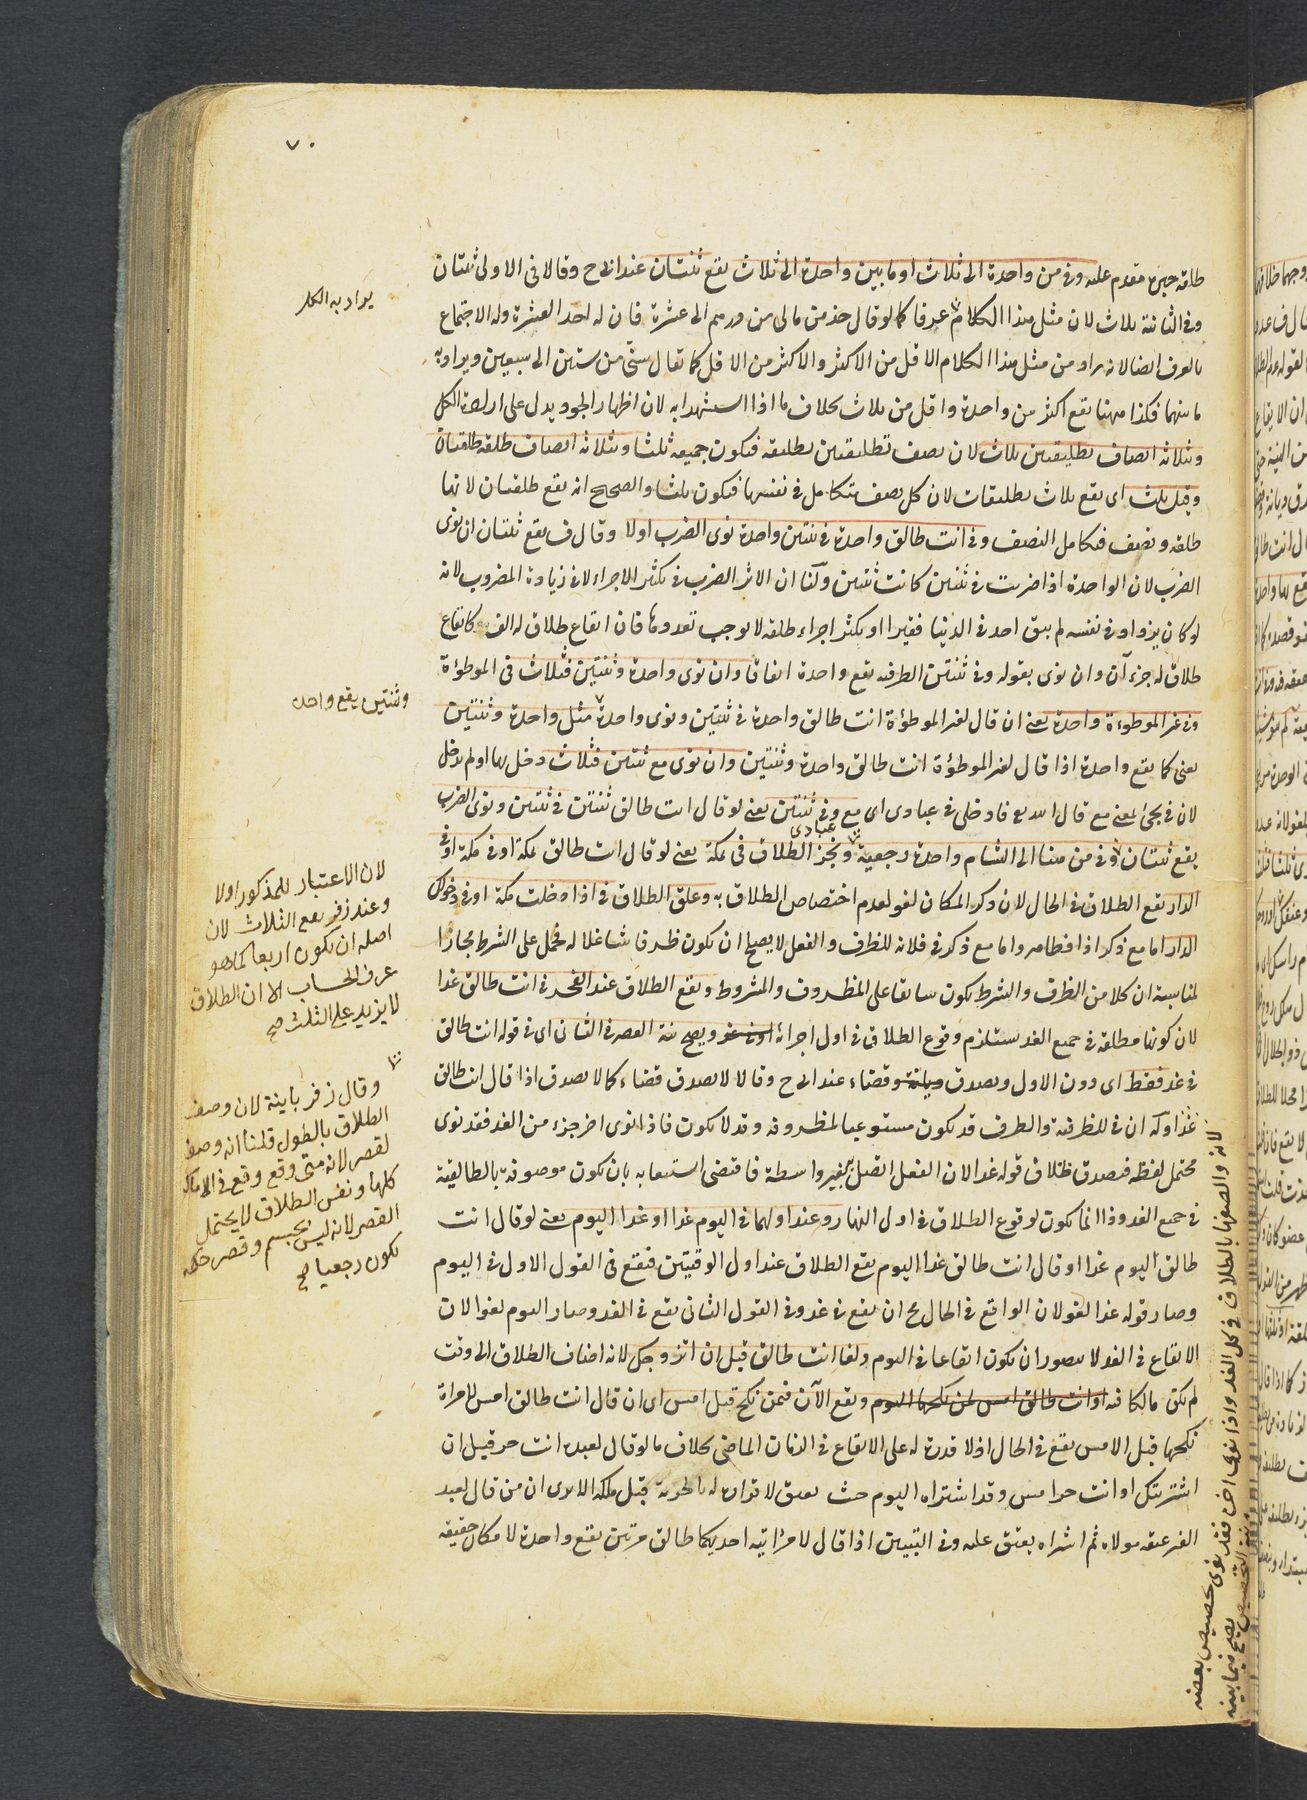 ٧٠
طلقة خبره مقدم عليه وفي من واحدة الى ثلاث او ما بين واحدة الى ثلاث يقع ثنتان عند ابى ح وقالا فى الاولى ثنتان
وفى الثانية ثلاث لان مثل هذا الكلام عرفا كما لو قال خذ من مالى من درهم الى عشرة فان له اخذ العشرة وله الاحتجاج
بالعرف ايضا لانه يراد من مثل هذا الكلام الاقل من الاكثر والاكثر من الاقل كما تقال سنى من ستين الى سبعين ويراد به
ما بينهما فكذا ههنا يقع اكثر من واحدة واقل من ثلاث بخلاف ما اذا استشهدا به لان اظهار الجود يدل على ارادة الكل
وثلاثة انصاف تطليقتين ثلاث لان نصف تطليقتين تطليقة فتكون جميعه ثلثا وثلاثة انصاف طلقة طلقتان
وقيل ثلث اى يقع ثلاث تطليقات لان كل نصف يتكامل فى نفسها فتكون ثلثا والصحيح انه يقع طلقتان لانها
طلقة ونصف فتكامل النصف وفى انت طالق واحدة فى ثنتين واحدة نوى الضرب اولا وقال ف يقع ثنتان ان نوى
الضرب لان الواحدة اذا ضربت فى ثنتين كانت ثنتين ولنا ان الاثر الضرب فى تكثير الاجزاء لا فى زيادة المضروب لانه
لو كان يزداد فى نفسه لم يبق احد فى الدنيا فقيرا او بكثير اجزاء طلقة لا يوجب تعددها فان ايقاع طلاق له الف كايقاع
طلاق له جزءان وان نوى بقوله وفى ثنتين الظرفية يقع واحدة اتفاقا وان نوى واحدة وثنتين فثلاث فى الموطؤة
وفى غير الموطوءة واحدة يعنى ان قال لغير الموطؤة انت طالق واحدة فى ثنتين ونوى واحدة مثل واحدة وثنتين
يعنى كما يقع واحدة اذا قال لغير الموطؤة انت طالق واحدة وثنتين وان نوى مع ثنتين فثلاث دخل بها او لم يدخل
لان فى يجئ لمعنى مع قال الله تع فادخلى فى عبادى اى مع عبادى وفى ثنتين يعنى لو قال انت طالق ثنتين فى ثنتين ونوى الضرب
يقع ثنتان وفى من هنا الى الشام واحدة رجعية ونجز الطلاق فى بمكة يعنى لو قال انت طالق بمكة او فى مكة او فى
الدار يقع الطلاق فى الحال لان ذكر المكان لغو لعدم اختصاص الطلاق به وعلق الطلاق فى اذا دخلت مكة او فى دخولك
الدار اما مع ذكر اذا فظاهر واما مع ذكر فى فلانه للظرف والفعل لا يصلح ان يكون ظرفا شاغلا له فحمل على الشرط مجازا
لمناسبة ان كلا من الظرف والشرط يكون سابقا على المظروف والمشروط ويقع الطلاق عند الفجر فى انت طالق غدا
لان كونها مطلقة فى جميع الغد يستلزم وقوع الطلاق فى اول اجزائه او فى غد ويصح نية العصر فى الثانى اى فى قوله انت طالق
فى غد فقط اى دون الاول ويصدق ديانة وقضاء عند ابى ح وقالا لا يصدق قضاء كما لا يصدق اذا قال انت طالق
غدا وله ان فى للظرفية والظرف قد يكون مستوعبا لمظروفه وقد لا يكون فاذا نوى اخر جزء من الغد فقد نوى
محتمل لفظه فيصدق بخلاف قوله غدا لان الفعل اتصل بغير واسطة فاقتضى استيعابه بان يكون موصوفة بالطالقية
فى جميع الغد وذا انما يكون لوقوع الطلاق فى اول النهار وعند اولهما فى اليوم غدا او غدا اليوم يعنى لو قال انت
طالق اليوم غدا او قال انت طالق غدا اليوم يقع الطلاق عند اول الوقتين فيقع فى القول الاول فى اليوم
وصار قوله غدا لغوا لان الواقع فى الحال يح ان يقع فى غد وفى القول الثانى يقع فى الغد وصار اليوم لغوا لان
الايقاع فى الغد لا يتصور ان يكون ايقاعا فى اليوم ولغا انت طالق قبل ان اتزوجك لانه اضاف الطلاق الى وقت
لم يكن مالكا فيه او انت طالق امس لمن نكحها اليوم ويقع الآن فيمن نكح قبل امس اى ان قال انت طالق امس لامراة
نكحها قبل الامس يقع فى الحال اذ لا قدرة له على الايقاع فى الزمان الماضى بخلاف ما لو قال لعبده انت حر قبل ان
اشتريتك او انت حر امس وقد اشتراه اليوم حيث يعتق لاقراره له بالحرية قبل ملكه الا يرى ان من قال لعبد
الغير عتقه مولاه ثم اشتراه يعتق عليه وفى التبيين اذا قال لامرأتيه احديكما طالق مرتين يقع واحدة لامكان حقيقه
يراد به الكل
وثنتين يقع واحدة
لان الاعتبار للمذكور اولا
وعند زفر يقع الثلاث لان
اصله ان يكون اربعا كما هو
عرف الحساب الا ان الطلاق
لا يزيد على الثلث صح
وقال زفر باينة لان وصف
الطلاق بالطول قلنا انه وصف
لقصر لانه متى وقع وقع فى الاماكن
كلها ونفس الطلاق لا يحتمل
القصر لانه ليس بجسم وقصر حكمه
بكون رجعيا صح
لانه والصفها بالطلاق فى كل الغد واذا نوى اخره فقد نوى تخصيص بعضه
ونية التخصيص يصح فيما بينه